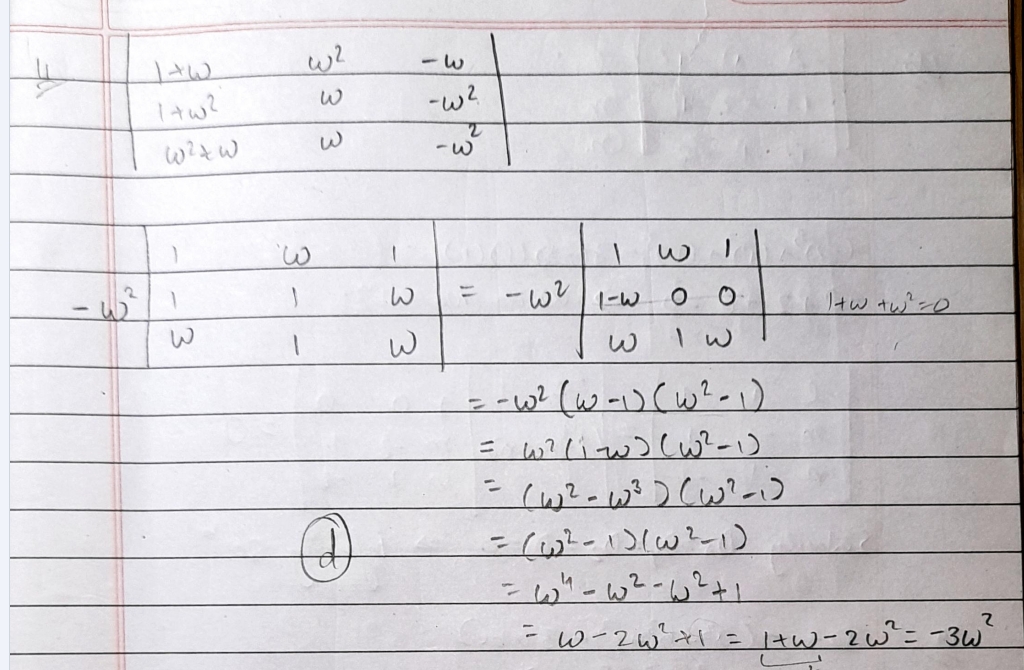 4
| 1+ω ω² -ω |
| 1+ω² ω -ω² |
| ω²+ω ω -ω² |
-ω² | 1 ω 1 | = -ω² | 1 ω 1 |
| 1 1 ω | | 1-ω 0 0 | 1+ω+ω²=0
| ω 1 ω | | ω 1 ω |
= -ω² (ω-1) (ω²-1)
= ω² (1-ω) (ω²-1)
= (ω²-ω³) (ω²-1)
(d) = (ω²-1) (ω²-1)
= ω⁴-ω²-ω²+1
= ω-2ω²+1 = 1+ω-2ω² = -3ω²